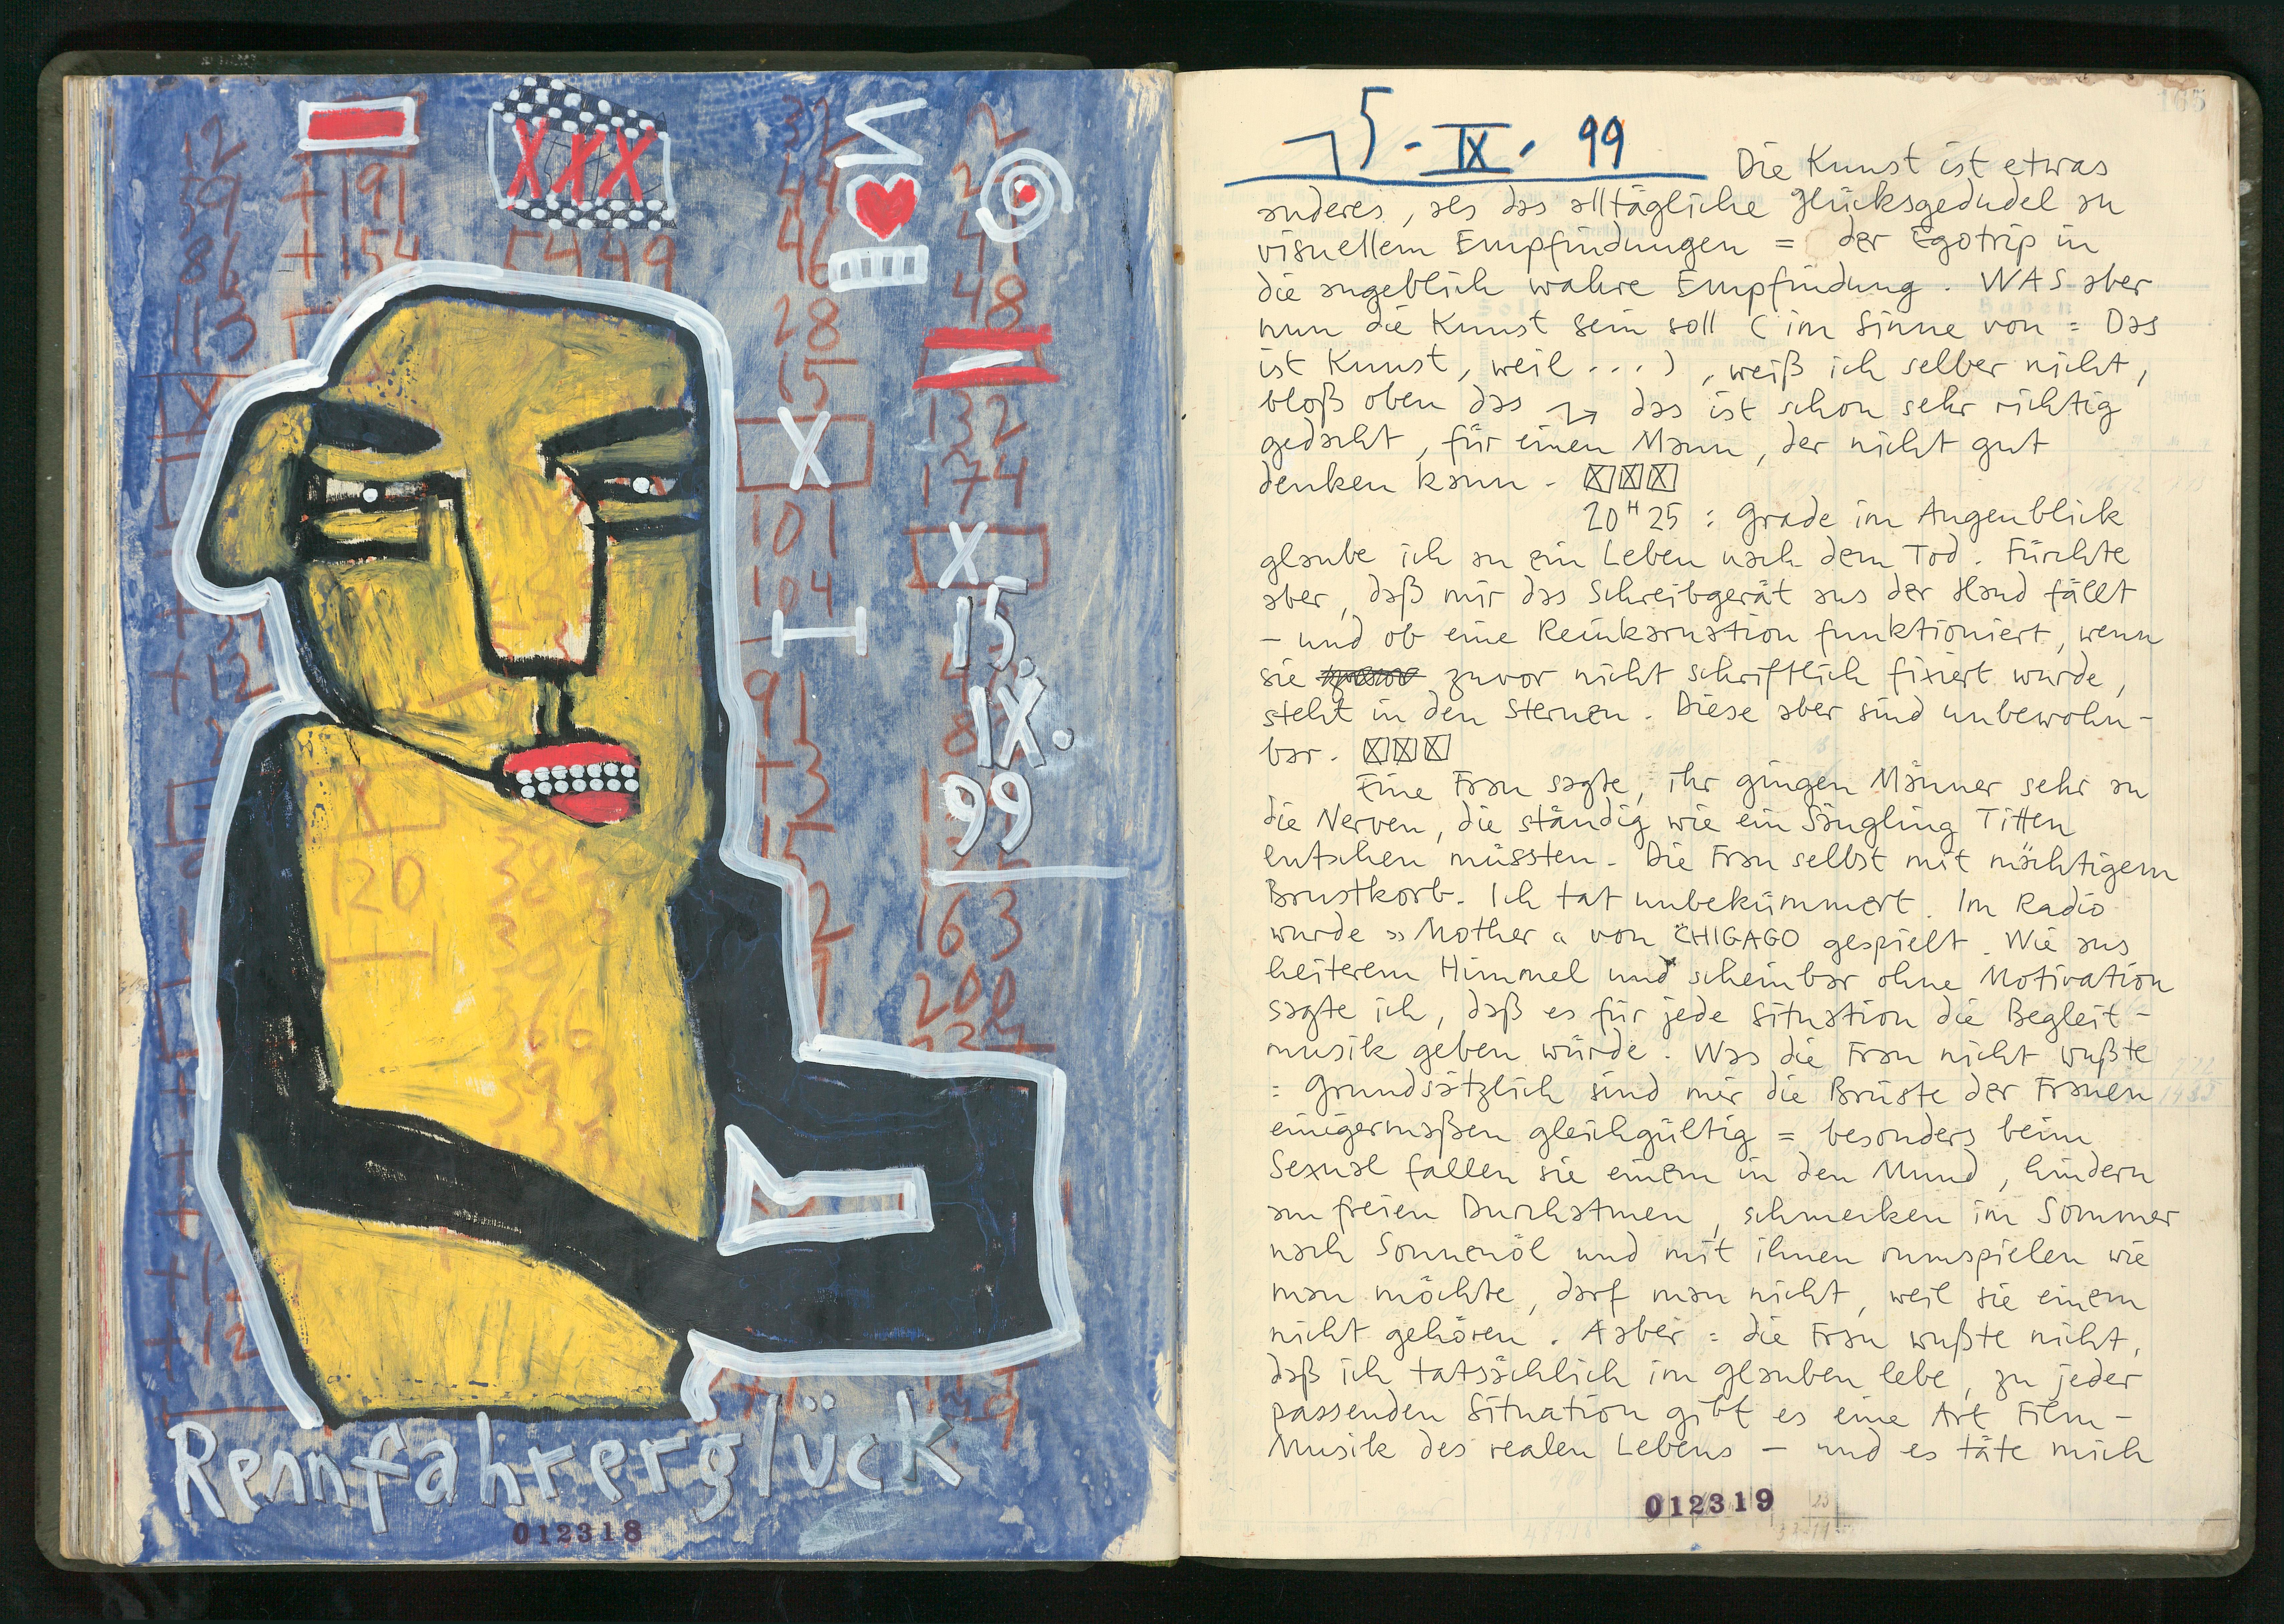 12
59
86
113
+191
+154
5449
XXX
32
44
46
28
15
X
101
104
91
+3
15
2
48
132
174
X
15.
IX.
99
163
200
X
120
366
393
Rennfahrerglück
012318
165
15. IX. 99
Die Kunst ist etwas
anderes, als das alltägliche Glücksgedudel an
visuellem Empfindungen = der Egotrip in
die angeblich wahre Empfindung. WAS aber
nun die Kunst sein soll (im Sinne von = Das
ist Kunst, weil ...), weiß ich selber nicht,
bloß oben das → das ist schon sehr richtig
gedacht, für einen Mann, der nicht gut
denken kann. ☒☒☒
20H25 : Grade im Augenblick
glaube ich an ein Leben nach dem Tod. Fürchte
aber, daß mir das Schreibgerät aus der Hand fällt
- und ob eine Reinkarnation funktioniert, wenn
sie zuvor nicht schriftlich fixiert wurde,
steht in den Sternen. Diese aber sind unbewohn-
bar. ☒☒☒
Eine Frau sagte, ihr gingen Männer sehr an
die Nerven, die ständig wie ein Säugling Titten
lutschen müssten. Die Frau selbst mit mächtigem
Brustkorb. Ich tat unbekümmert. Im Radio
wurde »Mother« von CHIGAGO gespielt. Wie aus
heiterem Himmel und scheinbar ohne Motivation
sagte ich, daß es für jede Situation die Begleit-
musik geben würde. Was die Frau nicht wußte
: Grundsätzlich sind mir die Brüste der Frauen
einigermaßen gleichgültig = besonders beim
Sexual fallen sie einem in den Mund, hindern
am freien Durchatmen, schmecken im Sommer
nach Sonnenöl und mit ihnen rumspielen wie
man möchte, darf man nicht, weil sie einem
nicht gehören. Aaber : die Frau wußte nicht,
daß ich tatsächlich im Glauben lebe, zu jeder
passenden Situation gibt es eine Art Film-
Musik des realen Lebens - und es täte mich
012319